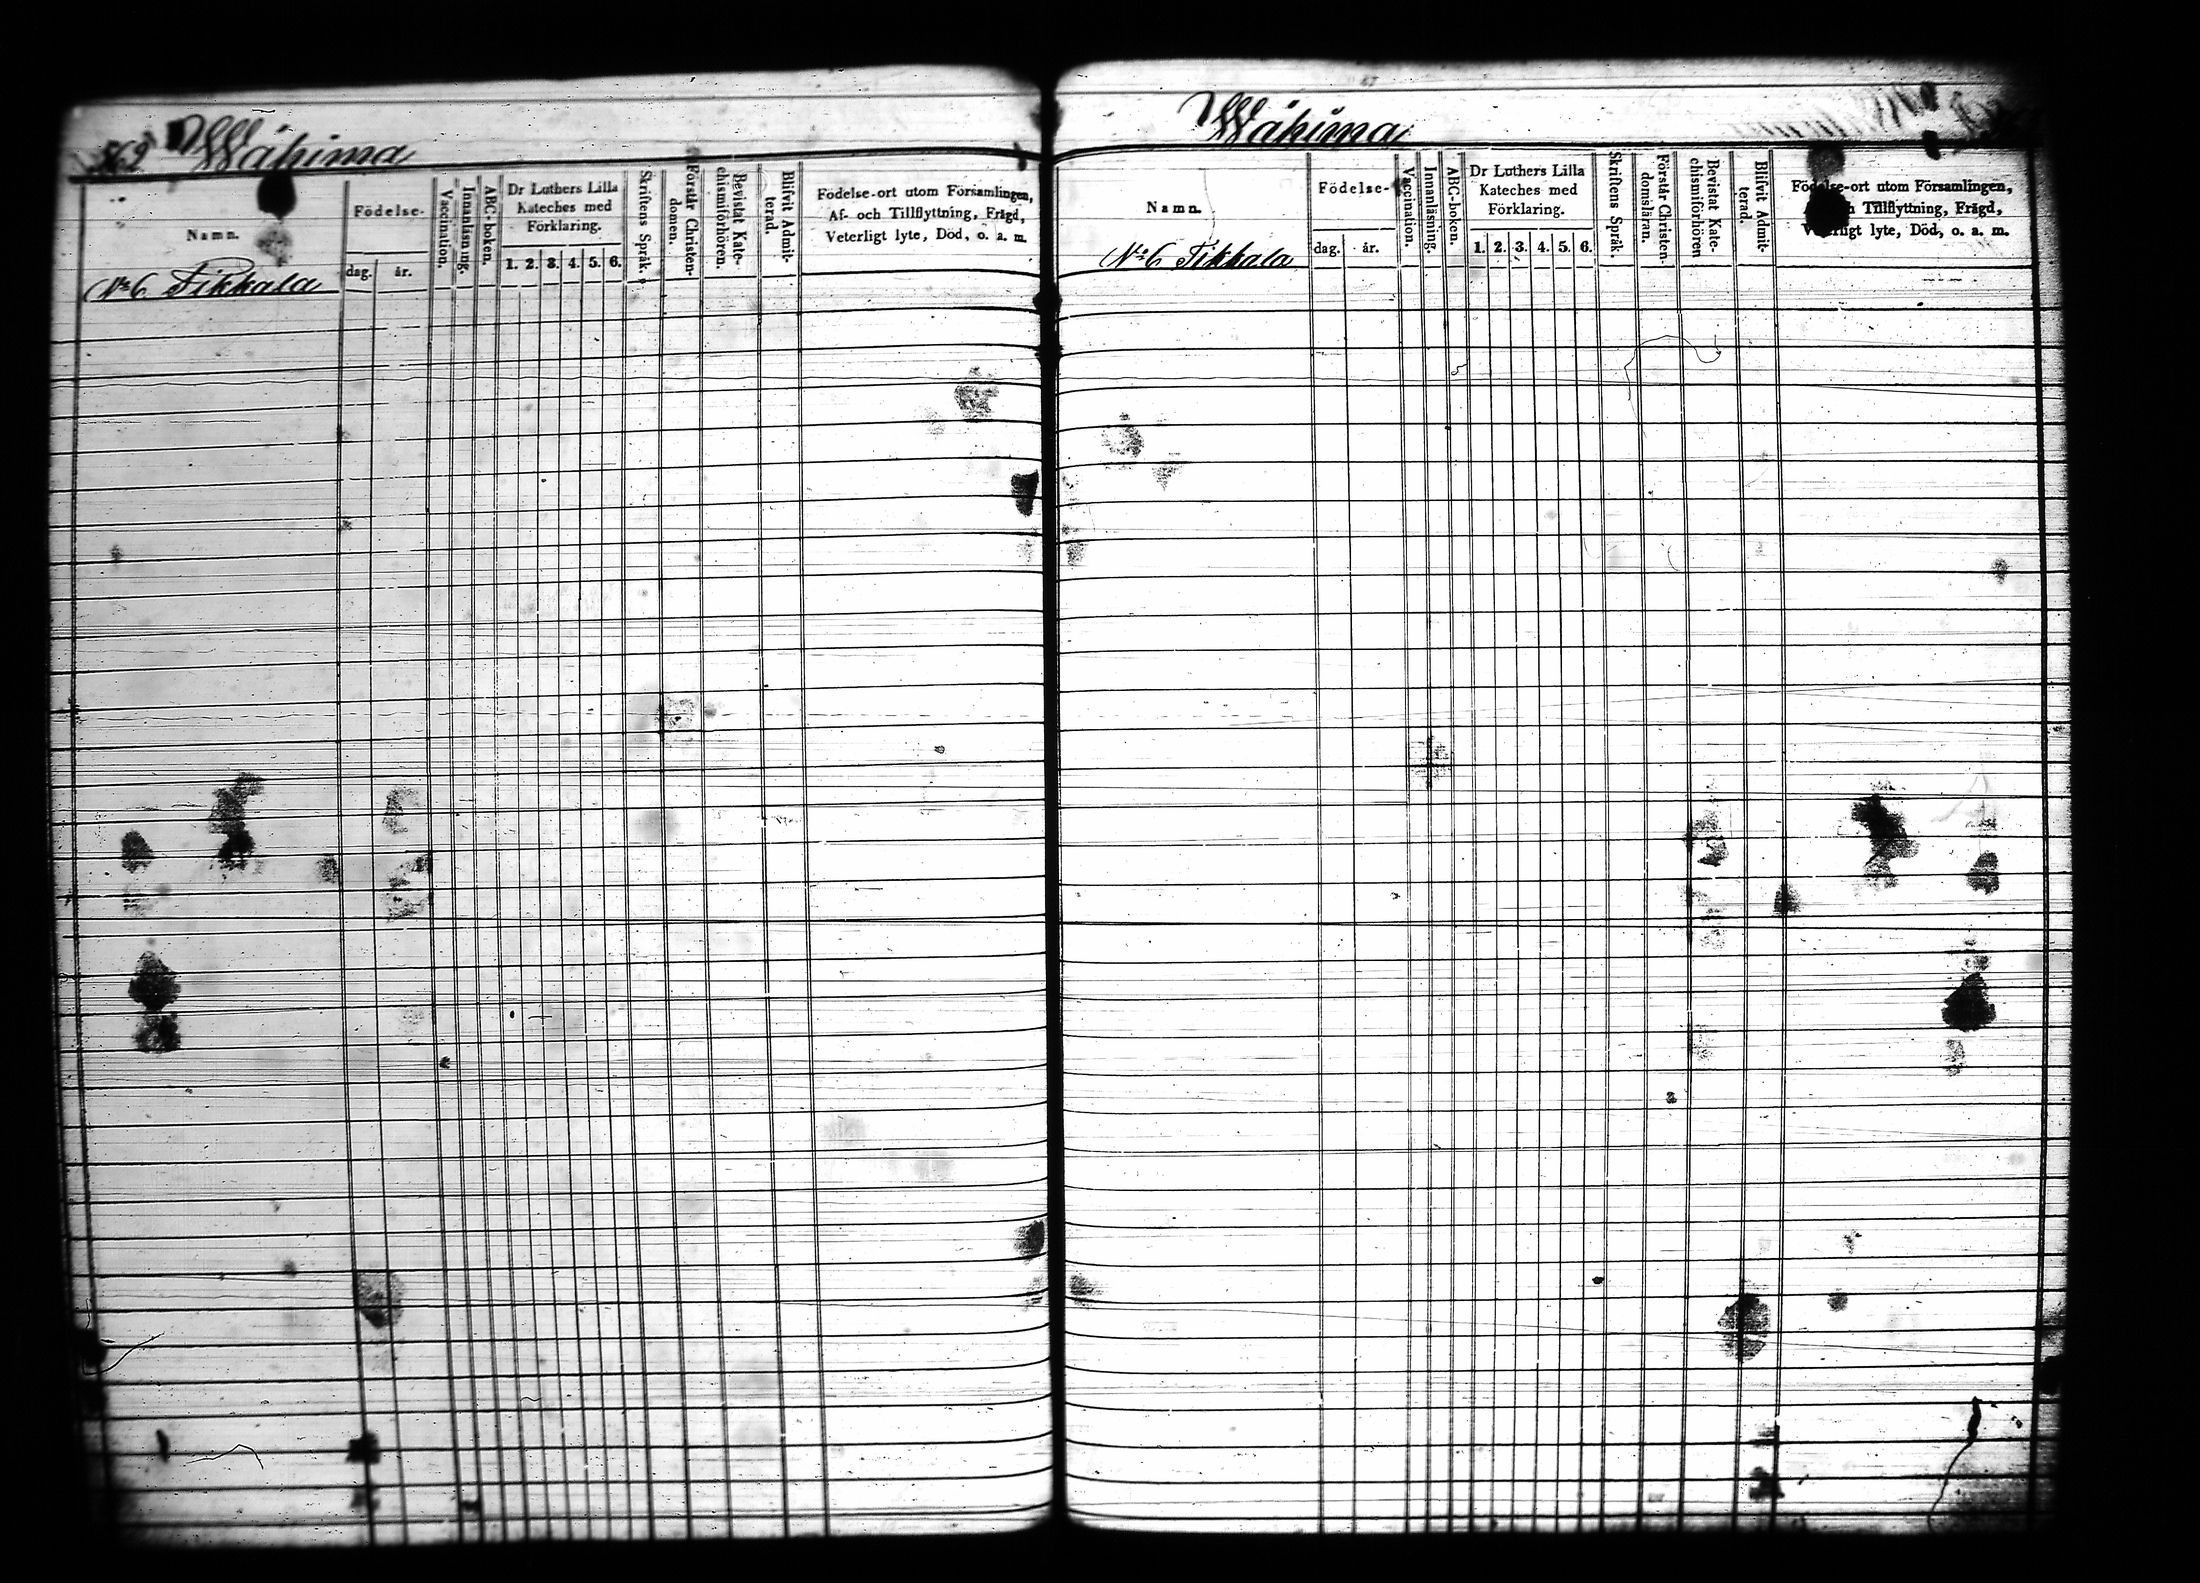 Wähima
Namn.
Födelse-
dag.
år.
Vaccination.
Innanläsning.
ABC-boken.
Dr Luthers Lilla
Kateches med
Förklaring.
1. 2. 3. 4. 5. 6.
Skriftens Språk.
Förstår Christen-
domen.
Bevistat Kate-
chismiförhören.
Blifvit Admit-
terad.
Födelse-ort utom Församlingen,
Af- och Tillflyttning, Frägd,
Veterligt lyte, Död, o. a. m.
No 6 Pikkala
Wähima
Namn.
Födelse-
dag.
år.
Vaccination.
Innanläsning.
ABC-boken.
Dr Luthers Lilla
Kateches med
Förklaring.
1. 2. 3. 4. 5. 6.
Skriftens Språk.
Förstår Christen-
domsläran.
Bevistat Kate-
chismiförhören
Blifvit Admit-
terad.
Födelse-ort utom Församlingen,
Tillflyttning, Frägd,
Veterligt lyte, Död, o. a. m.
No 6 Pikkala